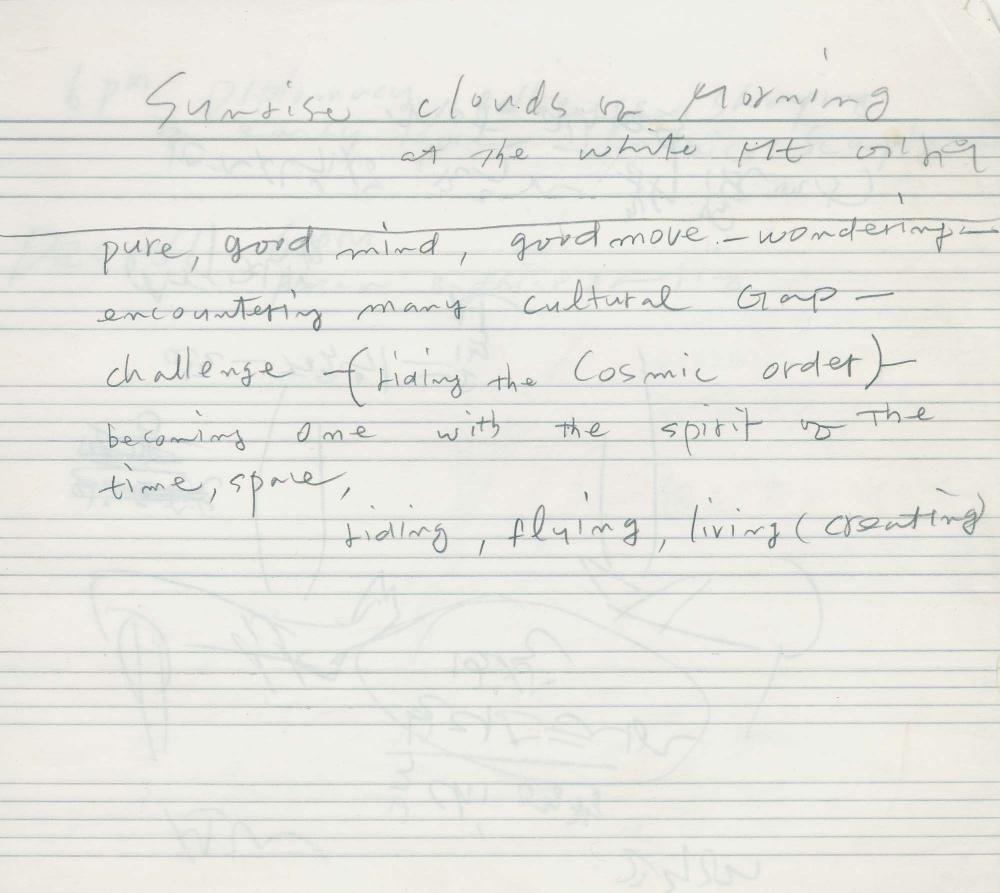 Sunrise clouds of Morning
at the white Mt
pure, good mind, good move. – wondering –
encountering many cultural Gap –
challenge – (riding the Cosmic order) –
becoming one with the spirit of the
time, space,
riding, flying, living (creating)